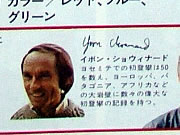 カラー／レッド、ブルー、
グリーン
Yvon Chouinard
イボン・ショウィナード
ヨセミテでの初登攀は50
を数え、ヨーロッパ、パ
タゴニア、アフリカなど
の大岩壁に数々の偉大な
初登攀の記録を持つ。